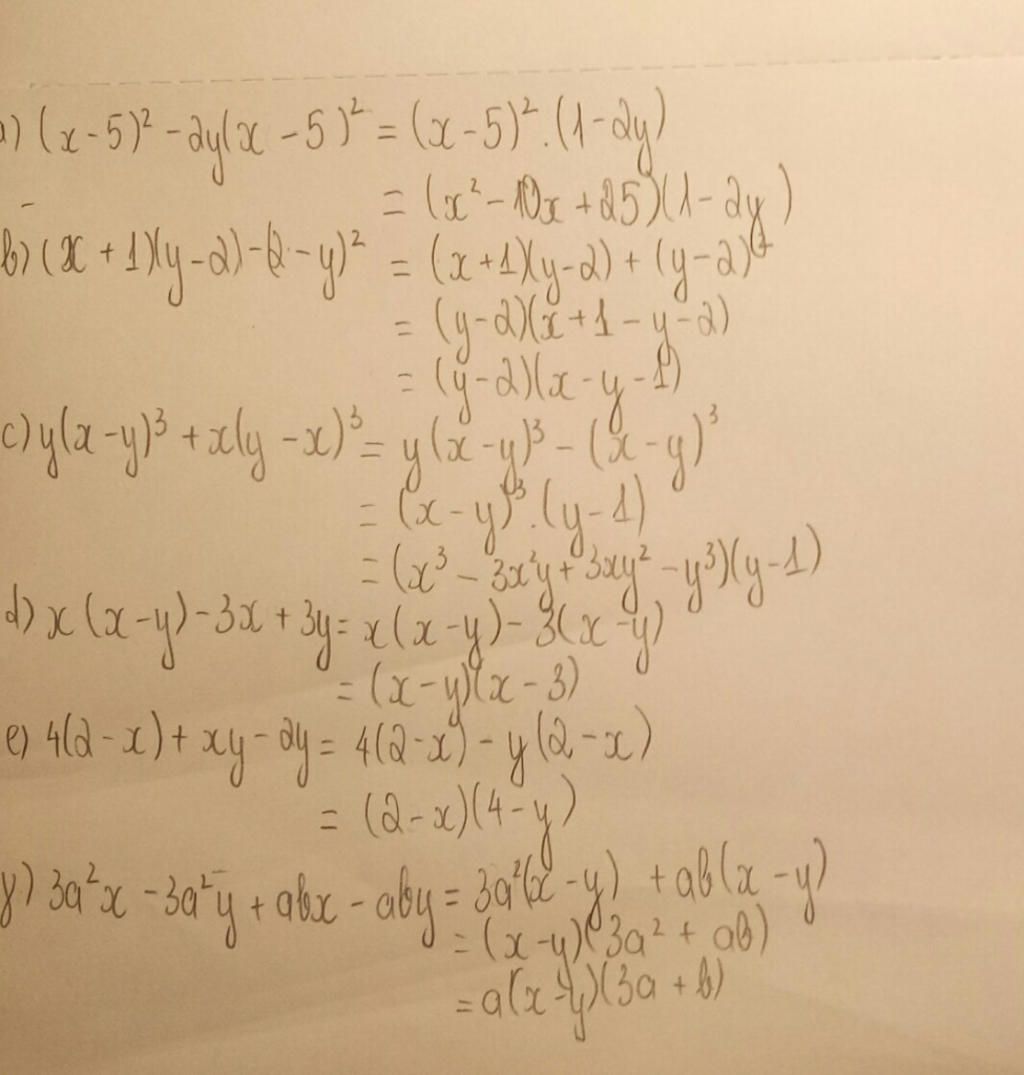 a) (x-5)² - 2y(x-5)² = (x-5)².(1-2y)
= (x² - 10x + 25)(1-2y)
b) (x+1)(y-2) - (2-y)² = (x+1)(y-2) + (y-2)²
= (y-2)(x+1-y-2)
= (y-2)(x-y-1)
c) y(x-y)³ + x(y-x)³ = y(x-y)³ - (x-y)³
= (x-y)³.(y-1)
= (x³ - 3x²y + 3xy² - y³)(y-1)
d) x(x-y) - 3x + 3y = x(x-y) - 3(x-y)
= (x-y)(x-3)
e) 4(2-x) + xy - 2y = 4(2-x) - y(2-x)
= (2-x)(4-y)
y) 3a²x - 3a²y + abx - aby = 3a²(x-y) + ab(x-y)
= (x-y)(3a² + ab)
= a(x-y)(3a+b)